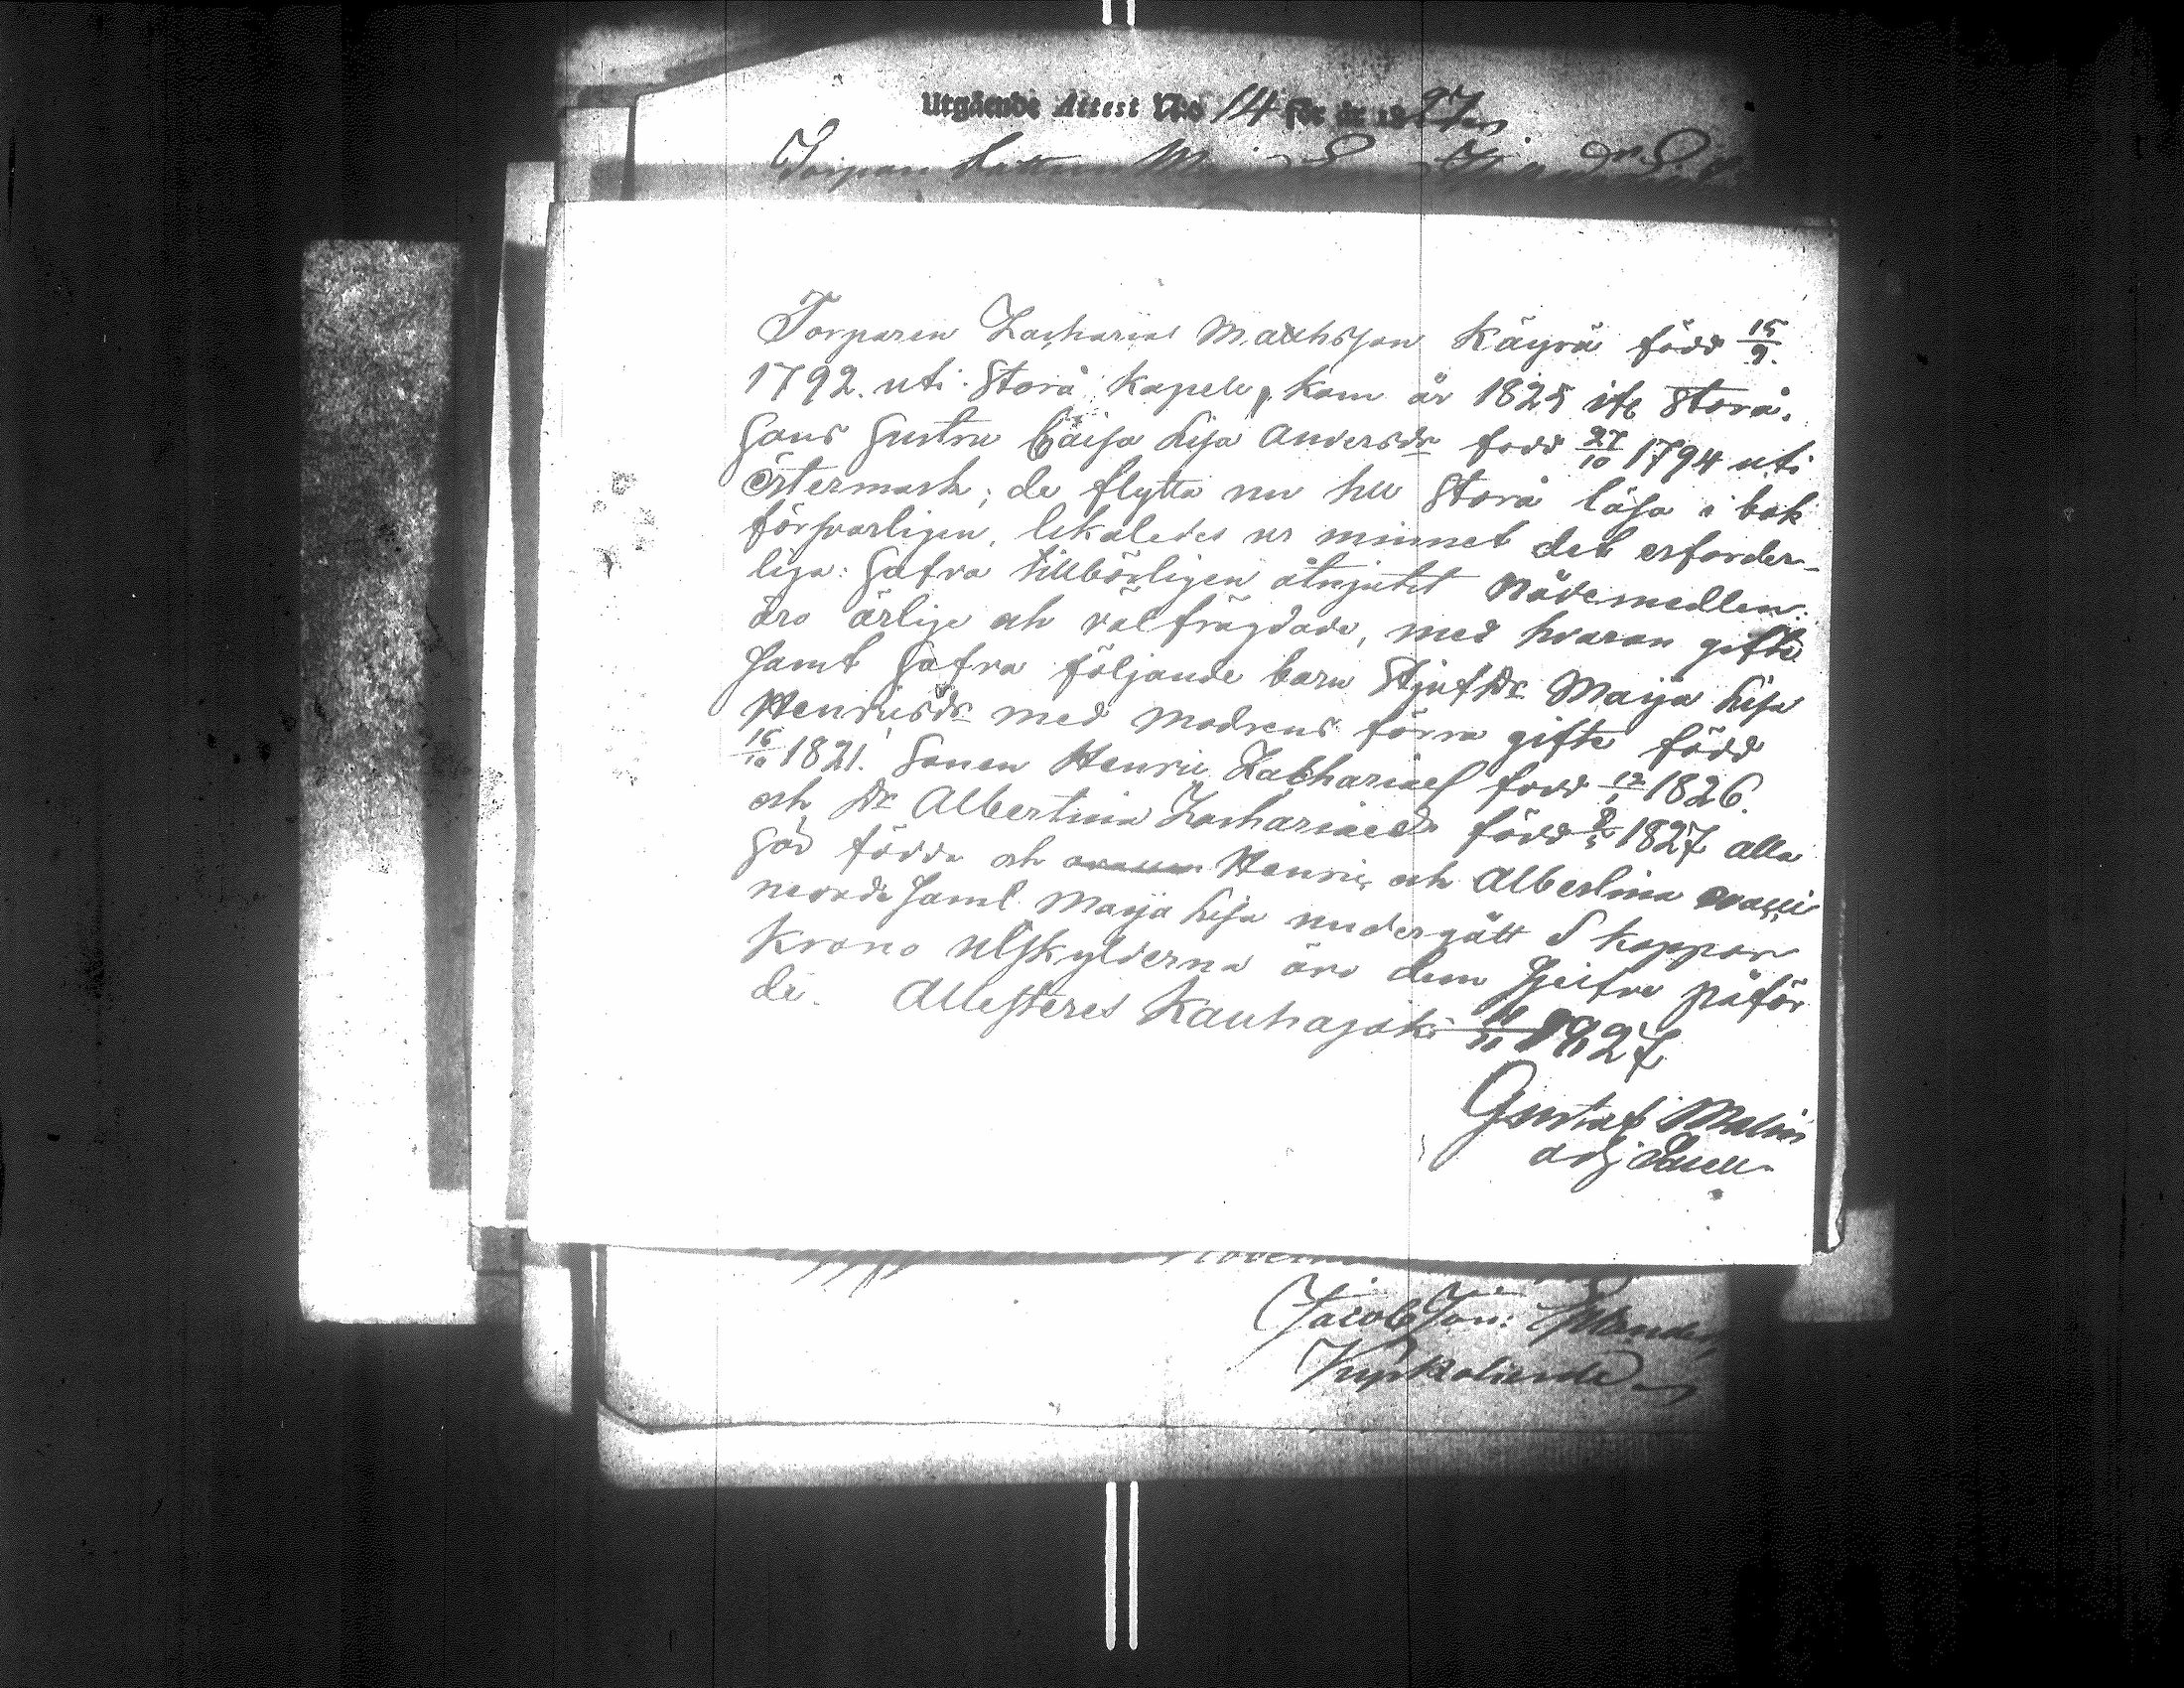 Utgående Attest N:o 14 för år 1827
Torparen Zacharias Matthsson Käyrä född 15/9.
1792. uti Storå Kapell, kom år 1825 ifr Storå.
Hans Hustru Caisa Lisa Andersdr född 27/10 1794 uti
Östermark; de flytta nu till Storå läsa i bok
försvarligen, likaledes ur minnet det erforder-
liga: Hafva tillbörligen åtnjutit Nådemedlen:
äro ärlige och välfrägdade, med hvaran gifte
samt hafva följande barn Stjufdr Maija Lisa
Henricsdr med modrens förra gifte född
16/10 1821. Sonen Henric Zachariaes född 12/1 1826.
och Dr Albertina Zachariaedr född 8/5 1827 alla
här födda och Henric och Albertina vacci
nerade saml Maija Lisa undergått S koppor
Krono utskylderna äro dem sjelfva påför
de. Attesteres Kauhajoki 11/11 1827
Gustaf Malin
adj Sacell
Jacob Joh:
Kyrkoherde